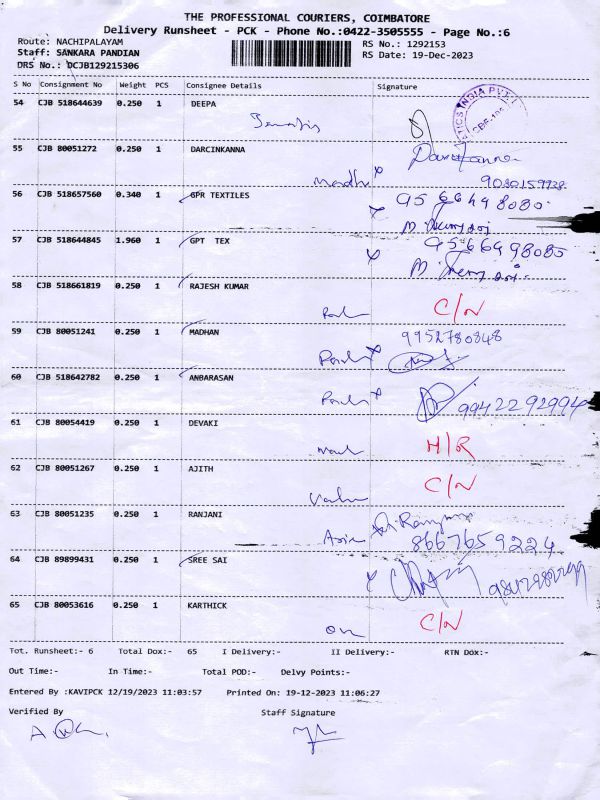 THE PROFESSIONAL COURIERS, COIMBATORE
Delivery Runsheet - PCK - Phone No.:0422-3505555 - Page No.:6
Route: NACHIPALAYAM
RS No.: 1292153
Staff: SANKARA PANDIAN
RS Date: 19-Dec-2023
DRS No.: DCJB129215306
S No Consignment No Weight PCS Consignee Details Signature
54 CJB 518644639 0.250 1 DEEPA
55 CJB 80051272 0.250 1 DARCINKANNA
Madh
56 CJB 518657560 0.340 1 GPR TEXTILES
95 66498080
57 CJB 518644845 1.960 1 GPT TEX
58 CJB 518661819 0.250 1 RAJESH KUMAR
C/N
59 CJB 80051241 0.250 1 MADHAN
9952780848
60 CJB 518642782 0.250 1 ANBARASAN
9942292994
61 CJB 80054419 0.250 1 DEVAKI
H/R
62 CJB 80051267 0.250 1 AJITH
C/N
63 CJB 80051235 0.250 1 RANJANI
8667659224
64 CJB 89899431 0.250 1 SREE SAI
65 CJB 80053616 0.250 1 KARTHICK
C/N
Tot. Runsheet:- 6 Total Dox:- 65 I Delivery:- II Delivery:- RTN Dox:-
Out Time:- In Time:- Total POD:- Delvy Points:-
Entered By :KAVIPCK 12/19/2023 11:03:57 Printed On: 19-12-2023 11:06:27
Verified By Staff Signature